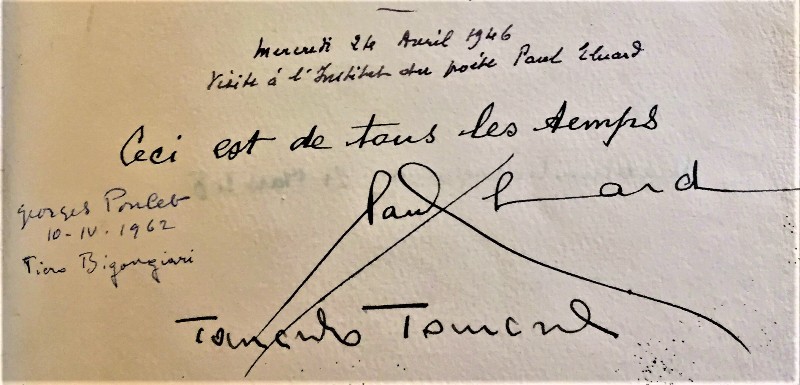 Mercredi 24 Avril 1946
Visite à l'Institut du poète Paul Eluard
Ceci est de tous les temps
Paul Eluard
Georges Poulet
10-IV-1962
Piero Bigongiari